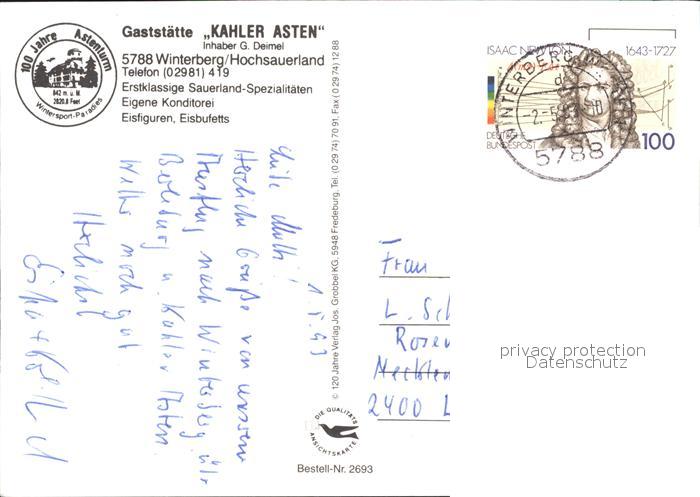 100 Jahre Astenturm
842 m. ü. M.
2820,8 Feet
Wintersport-Paradies
Gaststätte „KAHLER ASTEN“
Inhaber G. Deimel
5788 Winterberg/Hochsauerland
Telefon (02981) 419
Erstklassige Sauerland-Spezialitäten
Eigene Konditorei
Eisfiguren, Eisbufetts
ISAAC NEWTON 1643-1727
DEUTSCHE
BUNDESPOST
100
WINTERBERG
5788
1.5.93
Liebe Mutti!
Herzliche Grüße von unserem
Ausflug nach Winterberg über
Berleburg u. Kahler Asten.
Wetter noch gut
Herlichst
© 120 Jahre Verlag Jos. Grobbel KG, 5948 Fredeburg, Tel. (0 29 74) 70 91, Fax (0 29 74) 12 88
Frau
L. Sch
Rosen
Mecklen
2400 L
privacy protection
Datenschutz
DIE QUALITÄTS
ANSICHTSKARTE
Bestell-Nr. 2693